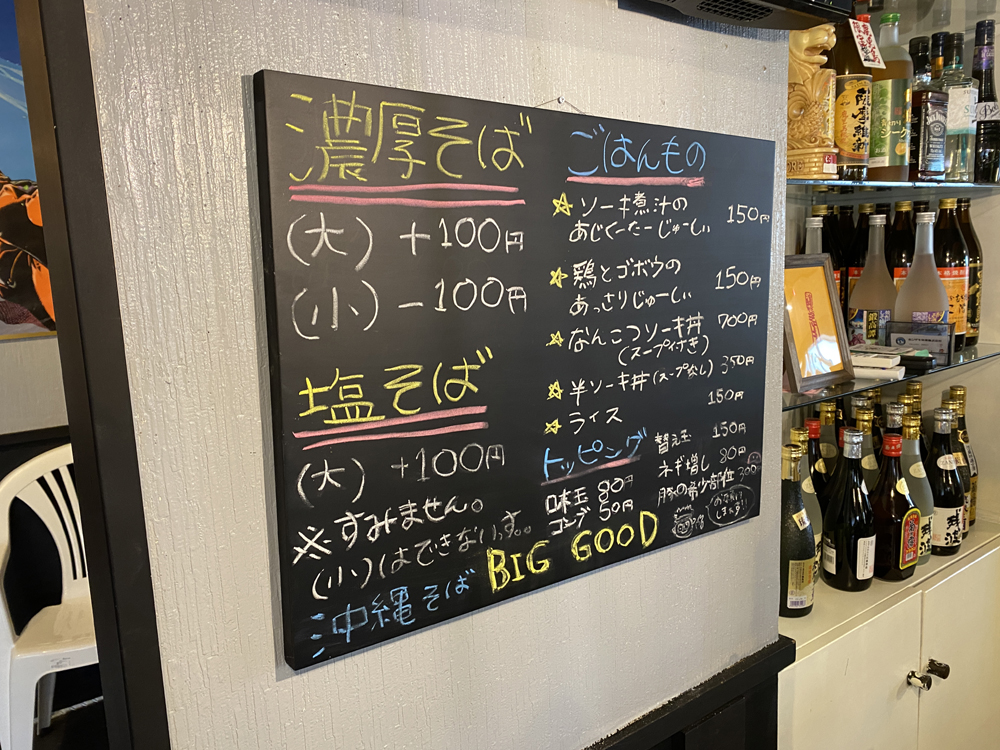 濃厚そば
(大) +100円
(小) -100円
塩そば
(大) +100円
※すみません。
(小)はできないっす。
沖縄そば BIG GOOD
ごはんもの
☆ソーキ煮汁の
あじくーたーじゅーしぃ 150円
☆鶏とゴボウの
あっさりじゅーしぃ 150円
☆なんこつソーキ丼 700円
(スープ付き)
☆半ソーキ丼(スープなし) 350円
☆ライス 150円
トッピング
味玉 80円
コンブ 50円
替え玉 150円
ネギ増し 80円
豚の希少部位 300
残波